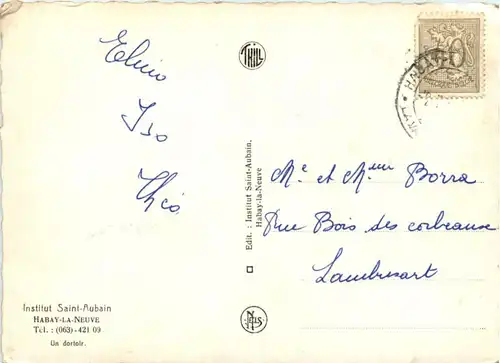 THILL
HABAY-
Elvio
Iso
Théo
Edit. : Institut Saint-Aubain,
Habay-la-Neuve
Me et Mme Borra
Rue Bois des corbeaux
Lambusart
Institut Saint-Aubain
HABAY-LA-NEUVE
Tel. : (063)-421 09
Un dortoir.
NELS